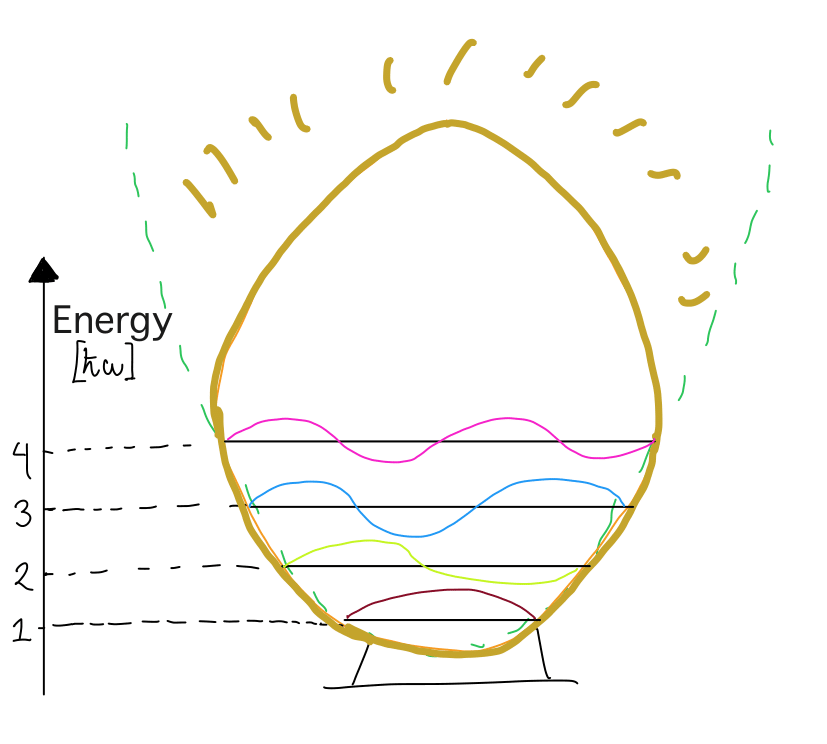 Energy
[ħω]
4
3
2
1